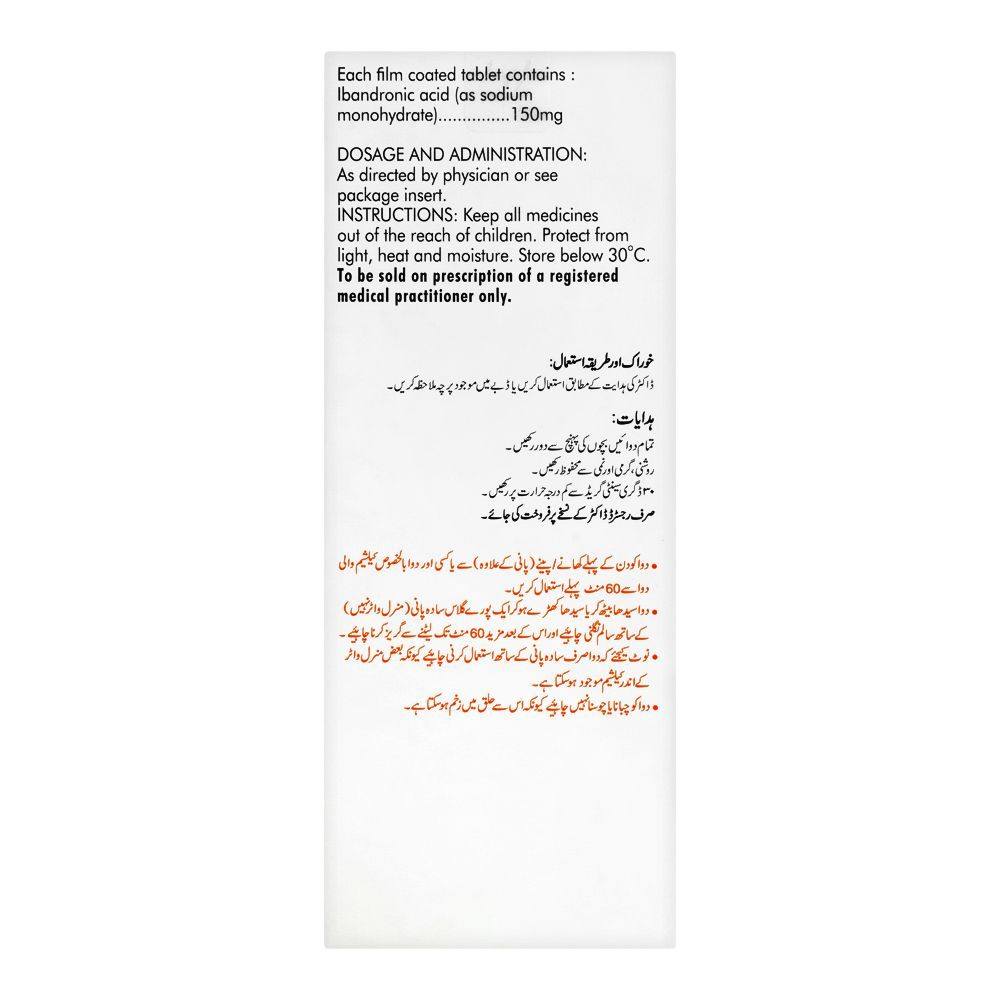 Each film coated tablet contains :
Ibandronic acid (as sodium
monohydrate)...............150mg
DOSAGE AND ADMINISTRATION:
As directed by physician or see
package insert.
INSTRUCTIONS: Keep all medicines
out of the reach of children. Protect from
light, heat and moisture. Store below 30°C.
To be sold on prescription of a registered
medical practitioner only.
خوراک اور طریقہ استعمال:
ڈاکٹر کی ہدایت کے مطابق استعمال کریں یا ڈبے میں موجود پرچہ ملاحظہ کریں۔
ہدایات:
تمام دوائیں بچوں کی پہنچ سے دور رکھیں۔
روشنی، گرمی اور نمی سے محفوظ رکھیں۔
۳۰ ڈگری سینٹی گریڈ سے کم درجہ حرارت پر رکھیں۔
صرف رجسٹرڈ ڈاکٹر کے نسخے پر فروخت کی جائے۔
• دوا کو دن کے پہلے کھانے/پینے (پانی کے علاوہ) سے یا کسی اور دوا بالخصوص کیلشیم والی
دوا سے 60 منٹ پہلے استعمال کریں۔
• دوا سیدھا بیٹھ کر یا سیدھا کھڑے ہو کر ایک پورے گلاس سادہ پانی (منرل واٹر نہیں)
کے ساتھ سالم نگلنی چاہیئے اور اس کے بعد مزید 60 منٹ تک لیٹنے سے گریز کرنا چاہیئے۔
• نوٹ کیجئے کہ دوا صرف سادہ پانی کے ساتھ استعمال کرنی چاہیے کیونکہ بعض منرل واٹر
کے اندر کیلشیم موجود ہوسکتا ہے۔
• دوا کو چبانا یا چوسنا نہیں چاہیئے کیونکہ اس سے حلق میں زخم ہوسکتا ہے۔